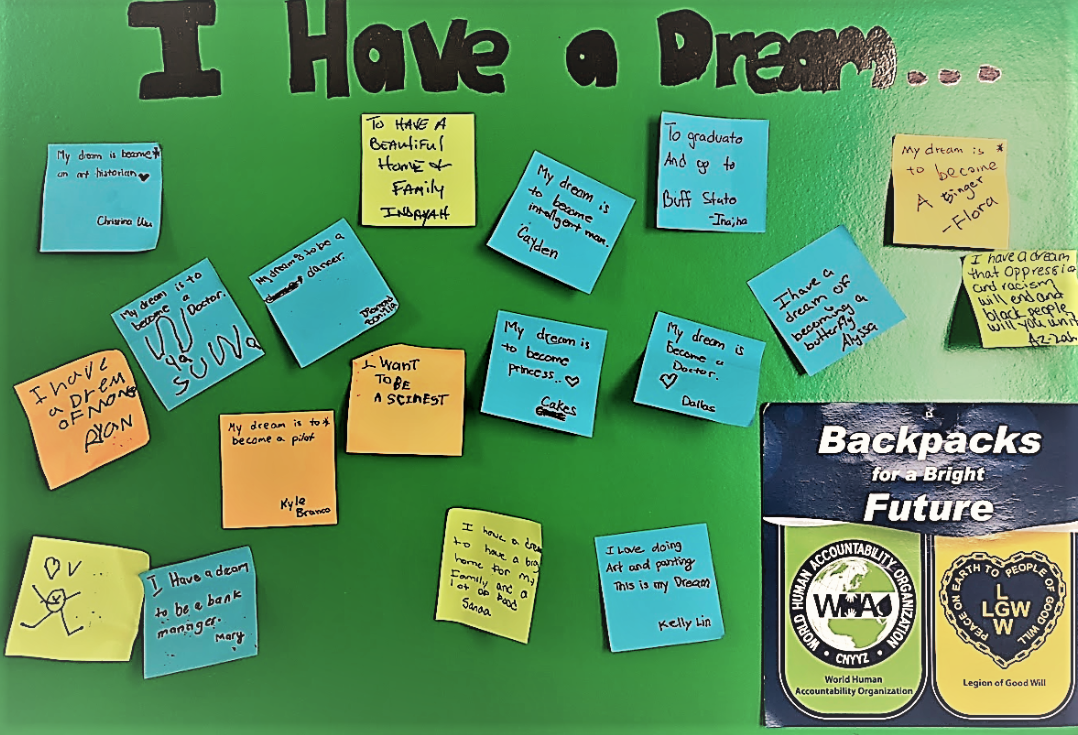 I Have a Dream...
My dream is become
an art historian
Christina Uu
TO HAVE A
BEAUTIFUL
HOME &
FAMILY
INDAYAH
My dream is
to become
intelligent man.
Cayden
To graduate
And go to
Buff State
-Inaiha
My dream is
to become
A singer
-Flora
I have a dream
that Oppressio
and racism
will end and
black people
will you unit
Az-zah
My dream is to
become a Doctor.
SUWa
My dream is to be a
dancer.
I have a
dream of
becoming a
butterfly
Alyssa
My dream is
to become
princess..
Cakes
My dream is
become a
Doctor.
Dallas
I WANT
TO BE
A SCINEST
I have
a Drem
of MONE
AYAN
My dream is to
become a pilot
Kyle
Branco
I have a drea
to have a big
home for my
Family and a
lot of food
Sanaa
I Love doing
Art and panting
This is my Dream
Kelly Lin
I Have a deam
to be a bank
manager.
Mary
Backpacks
for a Bright
Future
WORLD HUMAN ACCOUNTABILITY ORGANIZATION
• CNYYZ •
World Human
Accountability Organization
PEACE ON EARTH TO PEOPLE OF GOOD WILL
L
LGW
W
Legion of Good Will